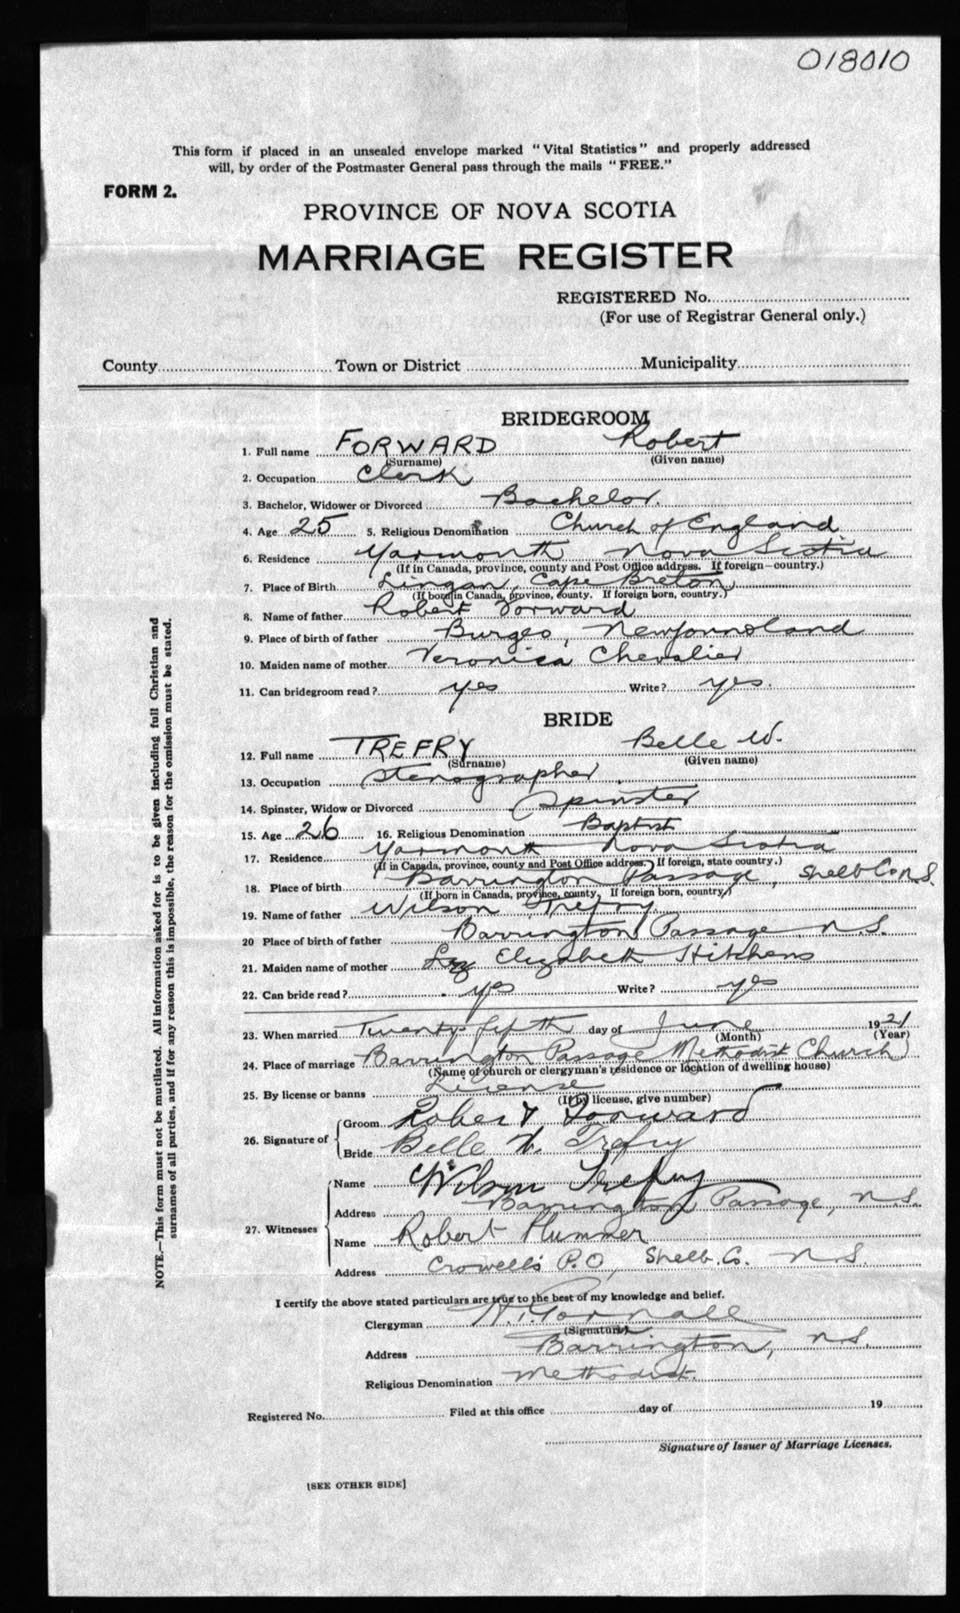 018010
This form if placed in an unsealed envelope marked "Vital Statistics" and properly addressed
will, by order of the Postmaster General pass through the mails "FREE."
FORM 2.
PROVINCE OF NOVA SCOTIA
MARRIAGE REGISTER
REGISTERED No.
(For use of Registrar General only.)
County Town or District Municipality
BRIDEGROOM
1. Full name FORWARD Robert
(Surname) (Given name)
2. Occupation Clerk
3. Bachelor, Widower or Divorced Bachelor.
4. Age 25 5. Religious Denomination Church of England
6. Residence Yarmouth Nova Scotia
(If in Canada, province, county and Post Office address. If foreign—country.)
7. Place of Birth Lingan, Cape Breton
(If born in Canada, province, county. If foreign born, country.)
8. Name of father Robert Forward
9. Place of birth of father Burgeo, Newfoundland
10. Maiden name of mother Veronica Chevalier
11. Can bridegroom read? yes Write? yes.
BRIDE
12. Full name TREFRY Belle W.
(Surname) (Given name)
13. Occupation Stenographer
14. Spinster, Widow or Divorced Spinster
15. Age 26 16. Religious Denomination Baptist
17. Residence Yarmouth Nova Scotia
(If in Canada, province, county and Post Office address. If foreign, state country.)
18. Place of birth Barrington Passage, Shelb Co. N.S.
(If born in Canada, province, county. If foreign born, country.)
19. Name of father Wilson Trefry
20 Place of birth of father Barrington Passage N.S.
21. Maiden name of mother Elizabeth Hitchens
22. Can bride read? yes Write? yes
23. When married Twenty-fifth day of June 1921
(Month) (Year)
24. Place of marriage Barrington Passage Methodist Church
(Name of church or clergyman's residence or location of dwelling house)
25. By license or banns License
(If by license, give number)
26. Signature of Groom Robert Forward
Bride Belle W. Trefry
27. Witnesses Name Wilson Trefry
Address Barrington Passage, N.S.
Name Robert Plummer
Address Crowell's P.O, Shelb. Co. N.S.
I certify the above stated particulars are true to the best of my knowledge and belief.
Clergyman
(Signature)
Address Barrington, N.S.
Religious Denomination Methodist.
Registered No. Filed at this office day of 19
Signature of Issuer of Marriage Licenses.
[SEE OTHER SIDE]
NOTE.—This form must not be mutilated. All information asked for is to be given including full Christian and
surnames of all parties, and if for any reason this is impossible, the reason for the omission must be stated.